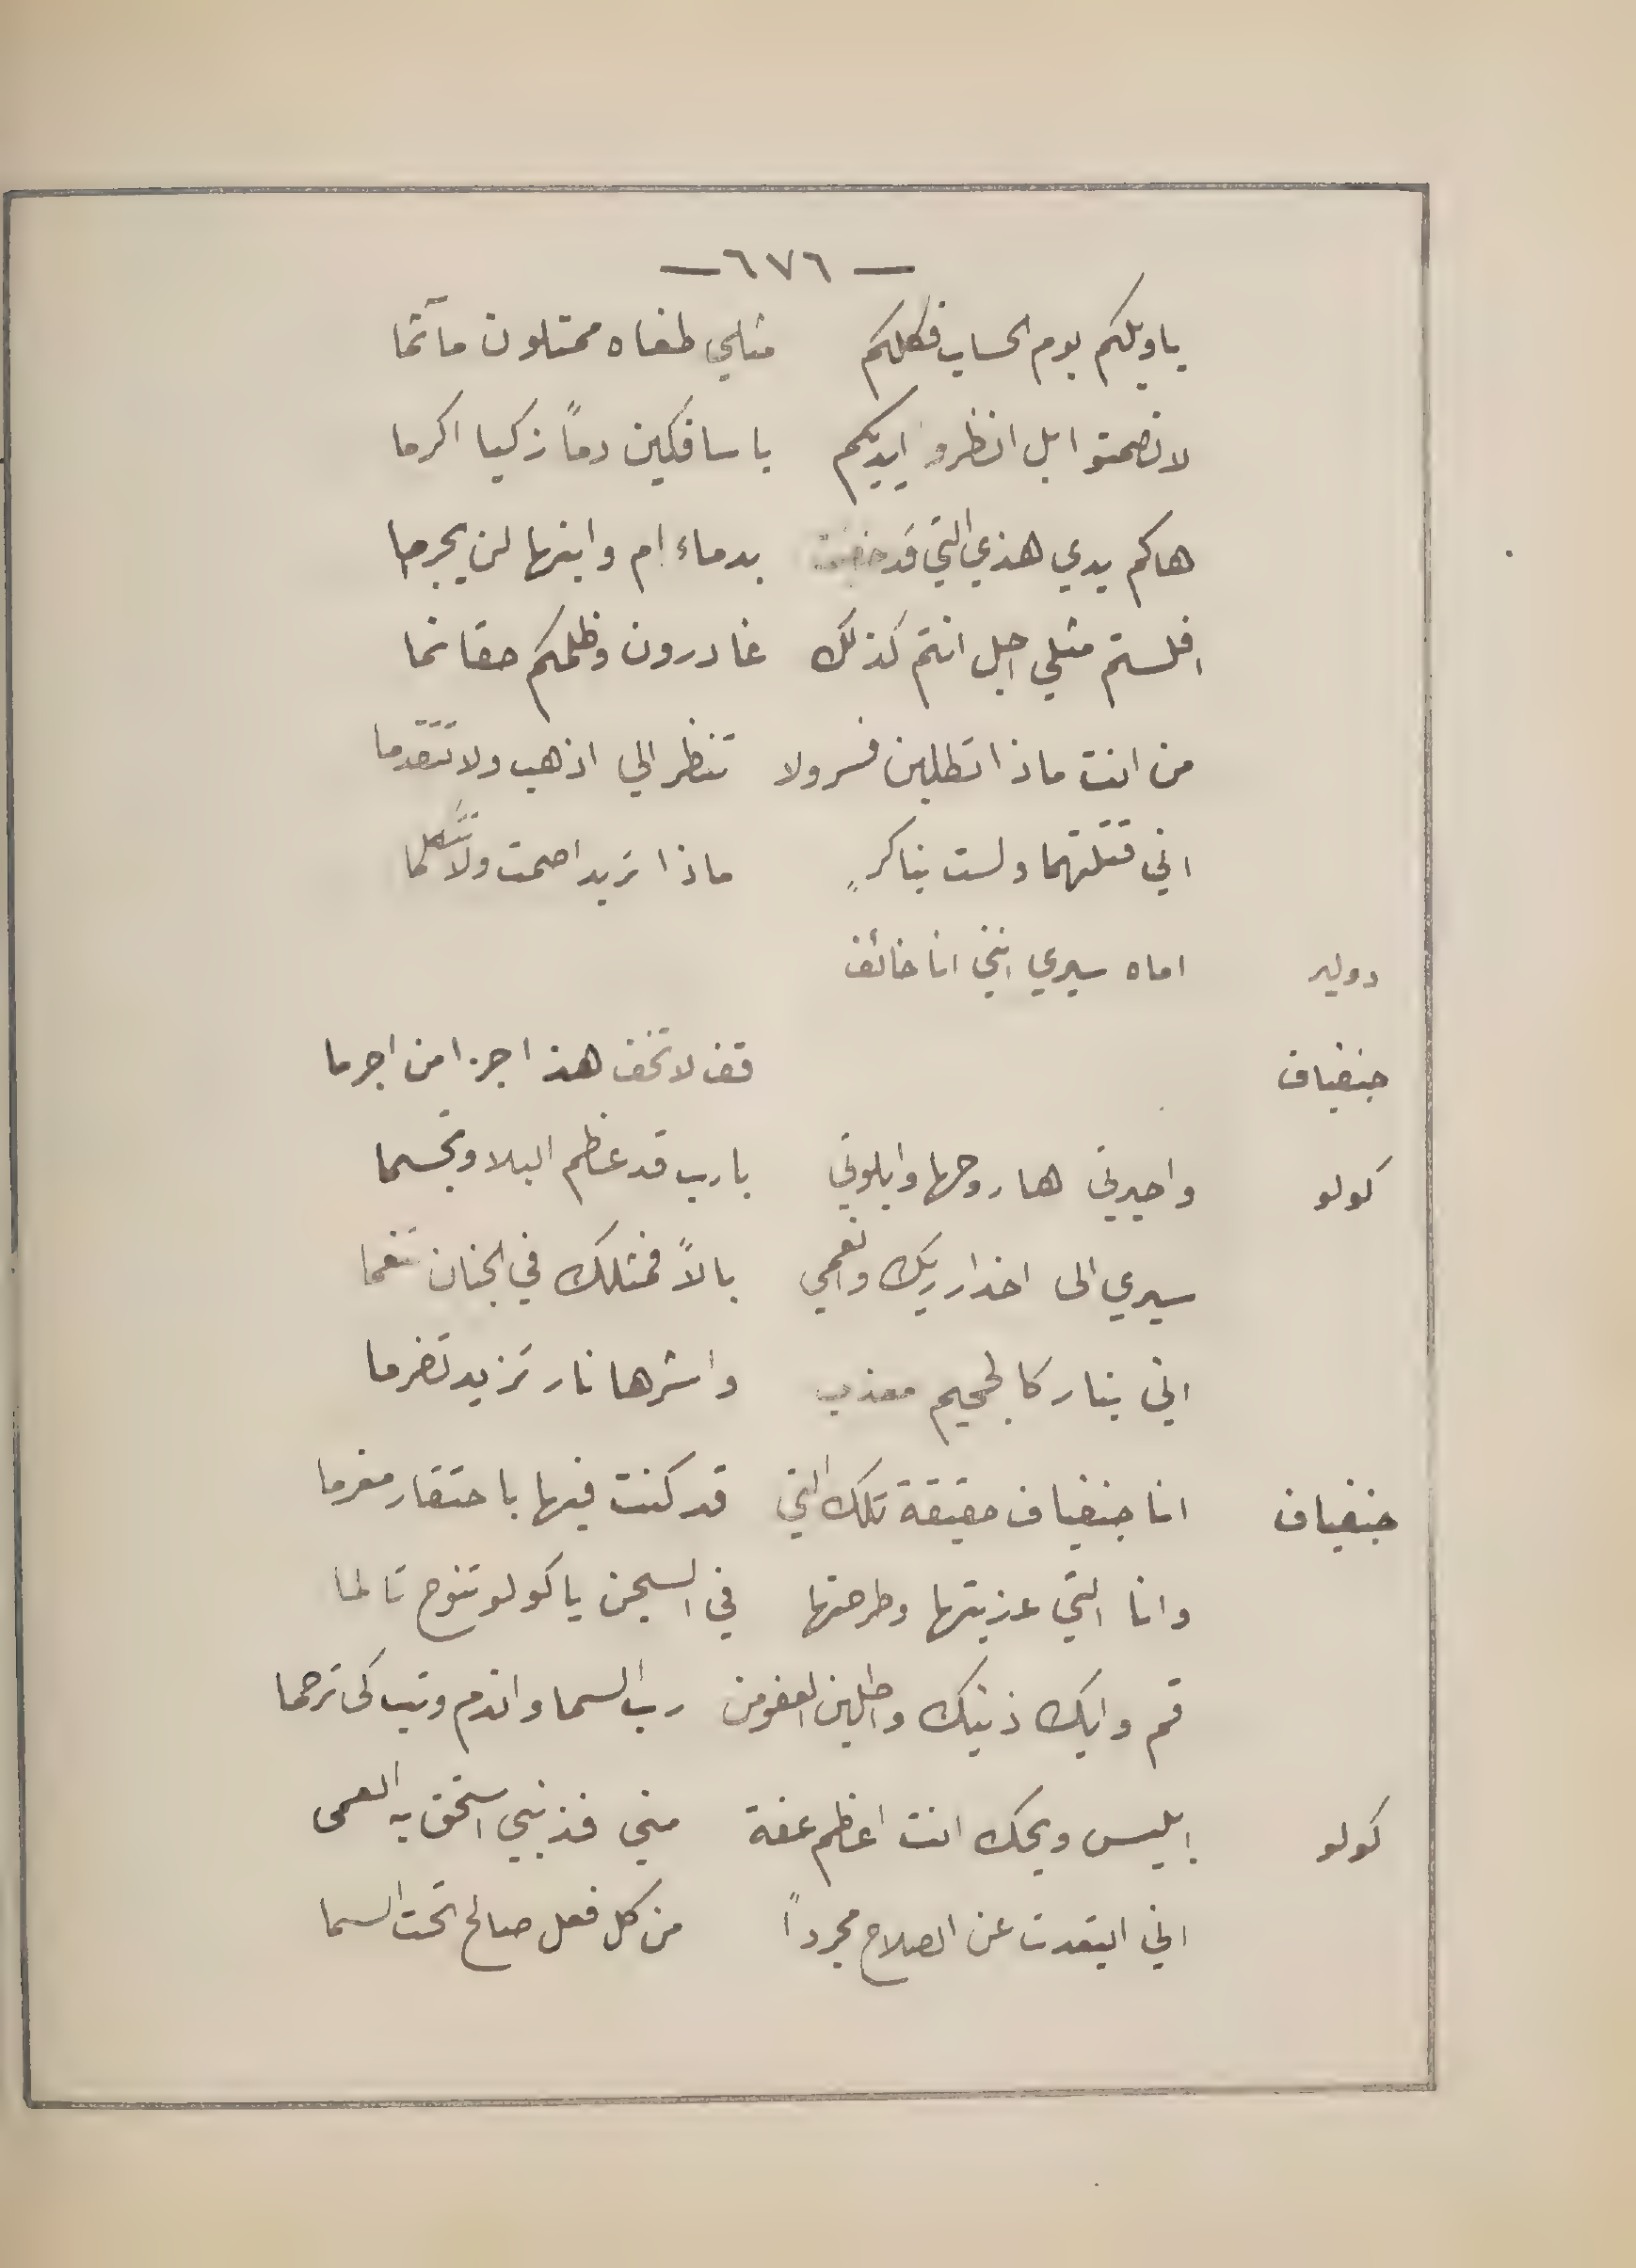 — ٦٧٦ —
ياويلكم يوم الحساب فكلكم مثلي طغاه ممتلون مآثما
لا تصمتوا بل انظروا ايديكم يا سافكين دماً زكيا اكرما
هاكم يدي هذي التي قد خضبت بدماء ام وابنها لن يجرما
افلستم مثلي اجل انتم كذلك غادرون وظلمكم حقا نما
من انت ماذا تطلبين فسر ولا تنظر الي اذهب ولا تتقدما
اني قتلتهما ولست بناكرٍ ماذا تريد اصمت ولا تتكلما
دولير اماه سيري انني انا خائف
جنفياف قف لا تخف هذا جزا من اجرما
كولو واحيرتي ها روحها وابلوتي يا رب قد عظم البلا وتجسما
سيري الى اخدار ربك وانعمي بالاً فمثلك في الجنان تنعما
اني بنار كالجحيم معذب واشرها نار تزيد تضرما
جنفياف انا جنفياف حقيقة تلك التي قد كنت فيها باحتقار مغرما
وانا التي عذبتها وطرحتها في السجن يا كولو تنوح تالما
قم وابك ذنبك واطلبن العفو من رب السما واندم وتب كى ترحما
كولو ابليس ويحك انت اعظم عفة مني فذنبي استحق به العمى
اني ابتعدت عن الصلاح مجرداً من كل فعل صالح تحت السما